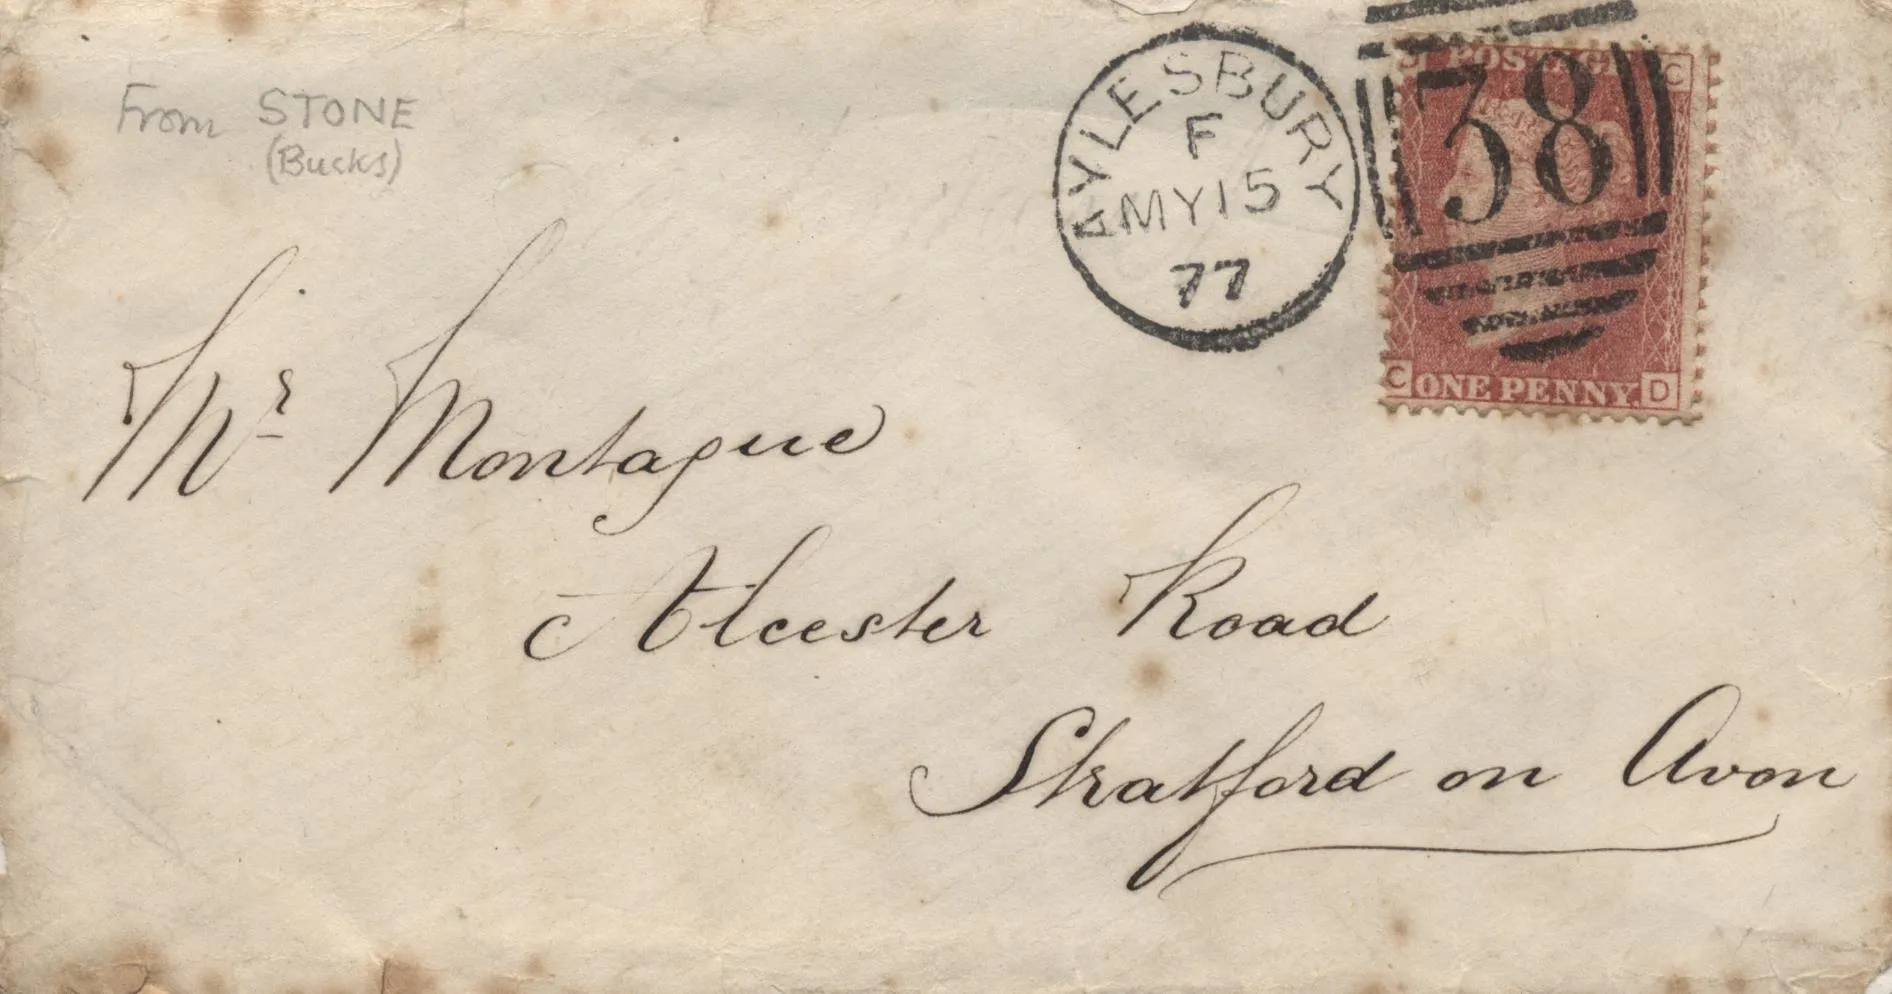 From STONE
(Bucks)
AYLESBURY
F
MY 15
77
38
POSTAGE
C
C ONE PENNY. D
Mr Montague
Alcester Road
Stratford on Avon